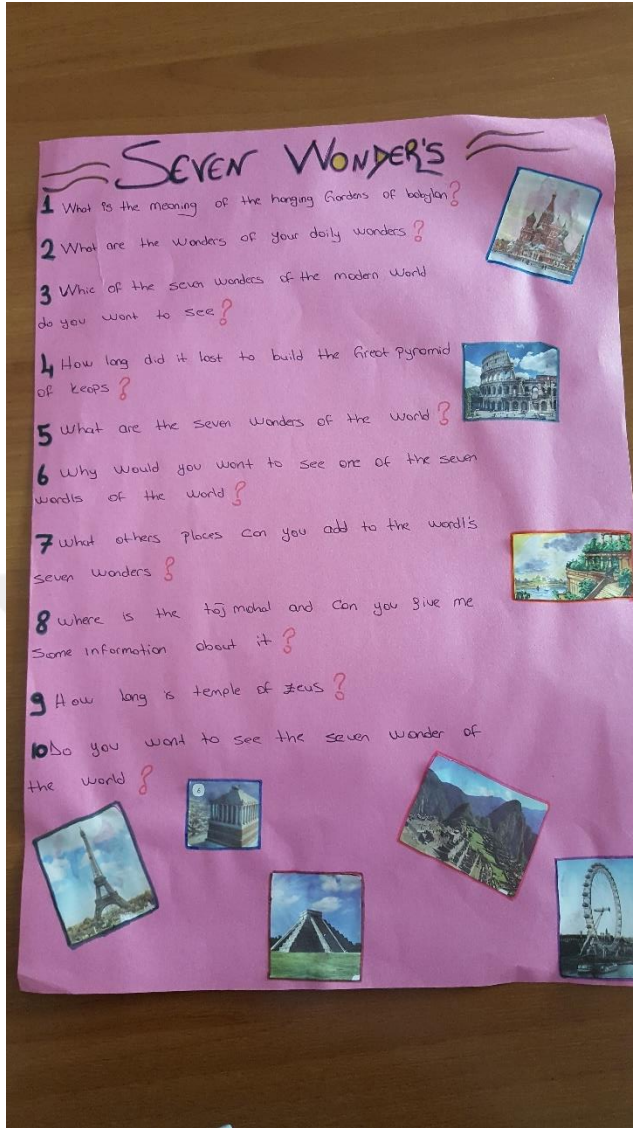 SEVEN WONDER'S
1 What is the meaning of the hanging Gardens of babylon?
2 What are the wonders of your daily wonders?
3 Whic of the seven wonders of the modern world
do you want to see?
4 How long did it last to build the Great Pyramid
of keops?
5 What are the seven wonders of the world?
6 Why would you want to see one of the seven
wordls of the world?
7 What others places can you add to the wordl's
seven wonders?
8 where is the taj mahal and can you give me
some information about it?
9 How long is temple of zeus?
10 Do you want to see the seven wonder of
the world?
6